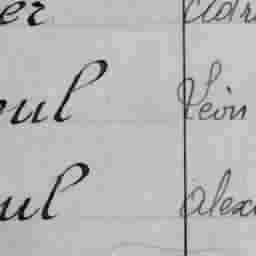 er Adr
oul Léon
ul alex